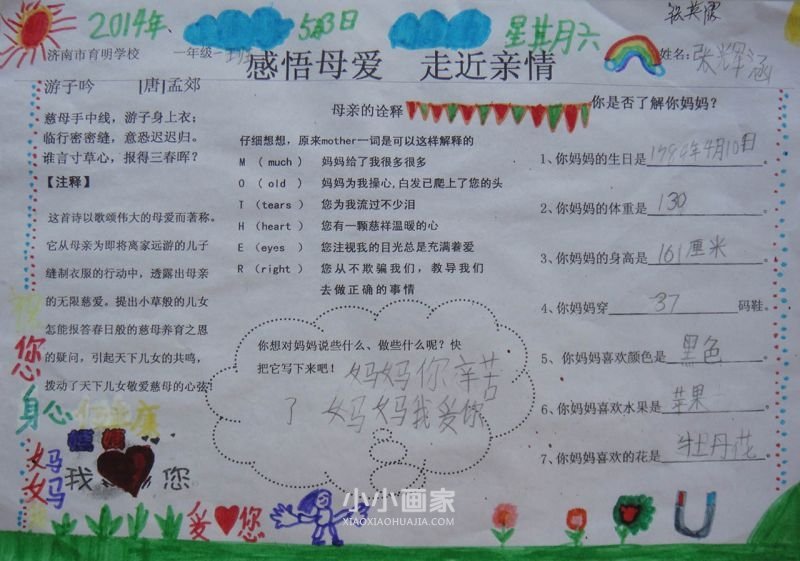 2014年 5月3日 星其月六
济南市育明学校 一年级一班 姓名：张辉涵
感悟母爱 走近亲情
游子吟 [唐]孟郊
慈母手中线，游子身上衣；
临行密密缝，意恐迟迟归。
谁言寸草心，报得三春晖？
【注释】
这首诗以歌颂伟大的母爱而著称。
它从母亲为即将离家远游的儿子
缝制衣服的行动中，透露出母亲
的无限慈爱。提出小草般的儿女
怎能报答春日般的慈母养育之恩
的疑问，引起天下儿女的共鸣，
拨动了天下儿女敬爱慈母的心弦！
母亲的诠释
仔细想想，原来mother一词是可以这样解释的
M （ much ） 妈妈给了我很多很多
O （ old ） 妈妈为我操心，白发已爬上了您的头
T （tears ） 您为我流过不少泪
H （heart ） 您有一颗慈祥温暖的心
E （eyes ） 您注视我的目光总是充满着爱
R （right ） 您从不欺骗我们，教导我们
去做正确的事情
你想对妈妈说些什么、做些什么呢？快
把它写下来吧！ 妈妈你辛苦
了 妈妈我爱你
你是否了解你妈妈？
1、你妈妈的生日是1984年4月10日。
2、你妈妈的体重是130。
3、你妈妈的身高是161厘米。
4、你妈妈穿37码鞋。
5、你妈妈喜欢颜色是黑色。
6、你妈妈喜欢水果是苹果。
7、你妈妈喜欢的花是牡丹花。
祝
您
身心健康
妈妈
妈妈
我 您
爱 您
小小画家
XIAOXIAOHUAJIA.COM